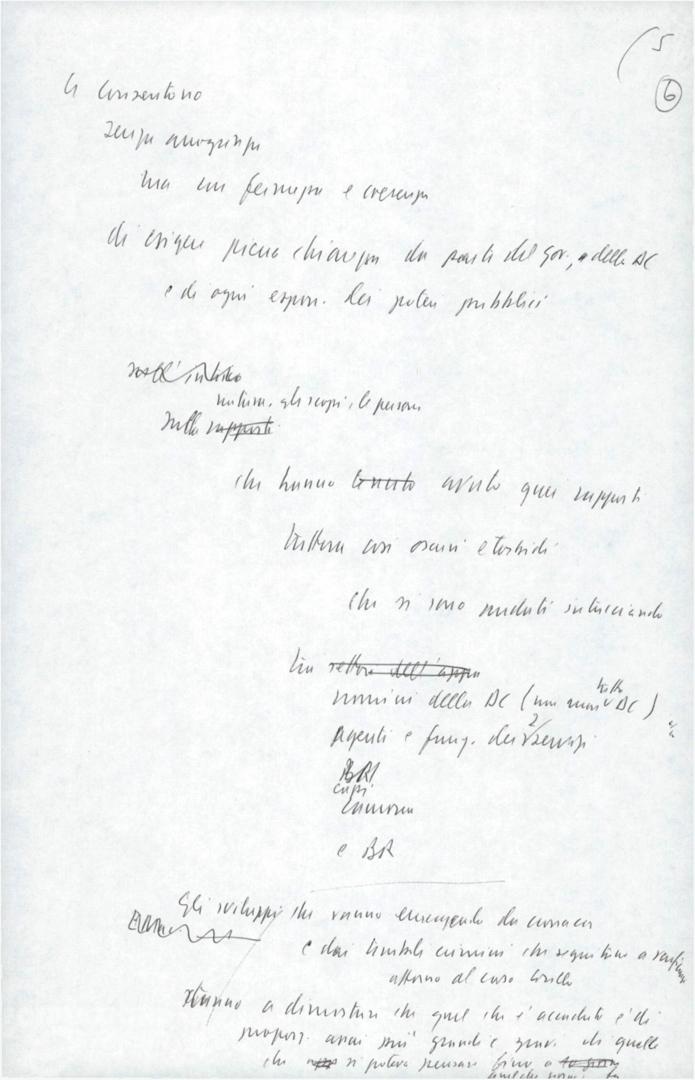 5
6
ci consentono
senza arroganza
ma con fermezza e coerenza
di esigere piena chiarezza da parte del gov., e della DC
e di ogni espon. dei poteri pubblici
natura, gli scopi, le persone
sulla rapporti
che hanno tenuto avuto quei rapporti
tuttora così oscuri e torbidi
che si sono andati intrecciando
tra settori dell'appa
uomini della DC (non tutta DC)
agenti e funz. dei 2 servizi
BR
capi
camorra
e BR
Gli sviluppi che vanno emergendo da cronaca
e dai terribili crimini che seguitano a
attorno al caso Cirillo
stanno a dimostrare che quel che è accaduto è di
propor. assai più grandi e gravi di quelle
che si poteva pensare fino a
qualche